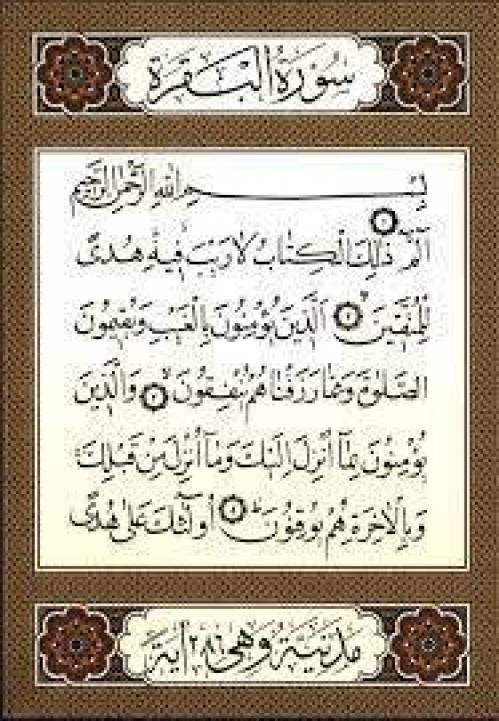 سُورَةُ الْبَقَرَةِ
بِسْمِ اللهِ الرَّحْمٰنِ الرَّحِيمِ
الٓمٓ ۝١ ذٰلِكَ الْكِتَابُ لَا رَيْبَ فِيهِ هُدًى
لِلْمُتَّقِينَ ۝٢ اَلَّذِينَ يُؤْمِنُونَ بِالْغَيْبِ وَيُقِيمُونَ
الصَّلٰوةَ وَمِمَّا رَزَقْنَاهُمْ يُنْفِقُونَ ۝٣ وَالَّذِينَ
يُؤْمِنُونَ بِمَا أُنْزِلَ اِلَيْكَ وَمَا أُنْزِلَ مِنْ قَبْلِكَ
وَبِالْاٰخِرَةِ هُمْ يُوقِنُونَ ۝٤ أُولٰئِكَ عَلٰى هُدًى
مَدَنِيَّةٌ وَهِيَ ٢٨٦ اٰيَةً